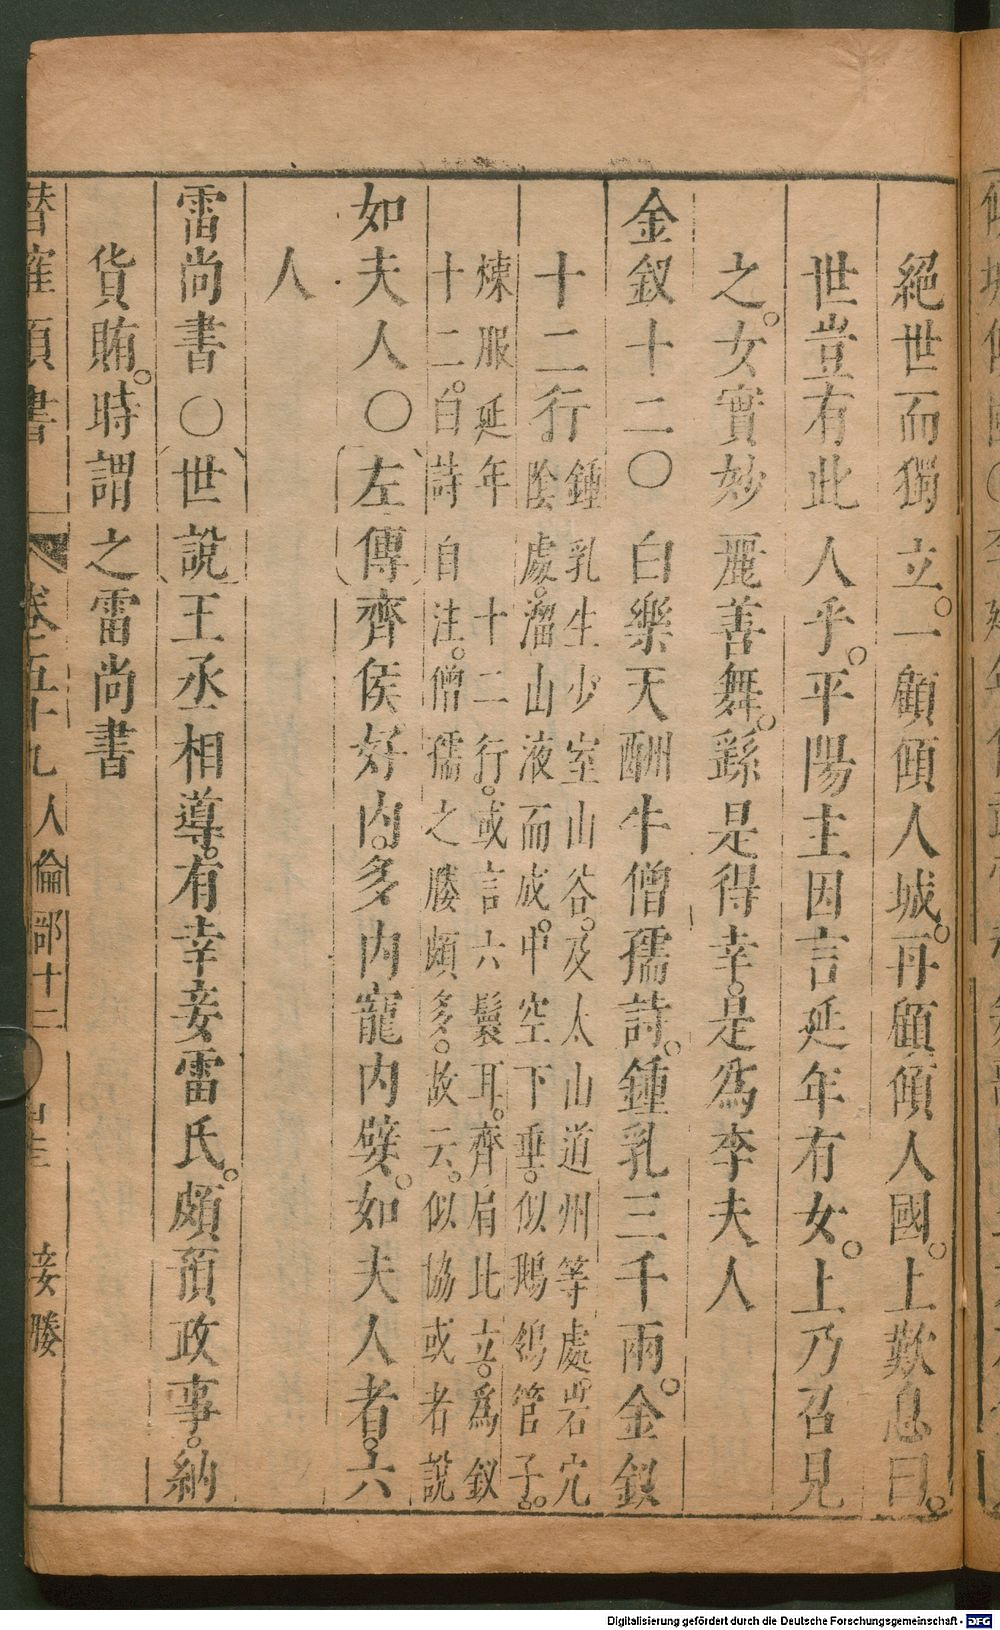 絕世而獨立。一顧傾人城。再顧傾人國。上歎息曰。
世豈有此人乎。平陽主因言延年有女。上乃召見
之。女實妙麗善舞。繇是得幸。是爲李夫人
金釵十二〇白樂天酬牛僧孺詩。鍾乳三千兩。金釵
十二行。鍾乳生少室山谷。及太山道州等處。岩穴
陰處。溜山液而成。中空下垂。似鵝翎管子。
煉服延年 十二行。或言六鬟耳。齊肩比立。爲釵
十二。白詩自注。僧孺之媵頗多。故云。似協或者說
如夫人〇左傳齊侯好內。多內寵內嬖。如夫人者。六
人
雷尚書〇世說王丞相導。有幸妾雷氏。頗預政事。納
貨賄。時謂之雷尚書
潛確類書 卷之五十九 人倫部十二 妾媵
Digitalisierung gefördert durch die Deutsche Forschungsgemeinschaft - DFG